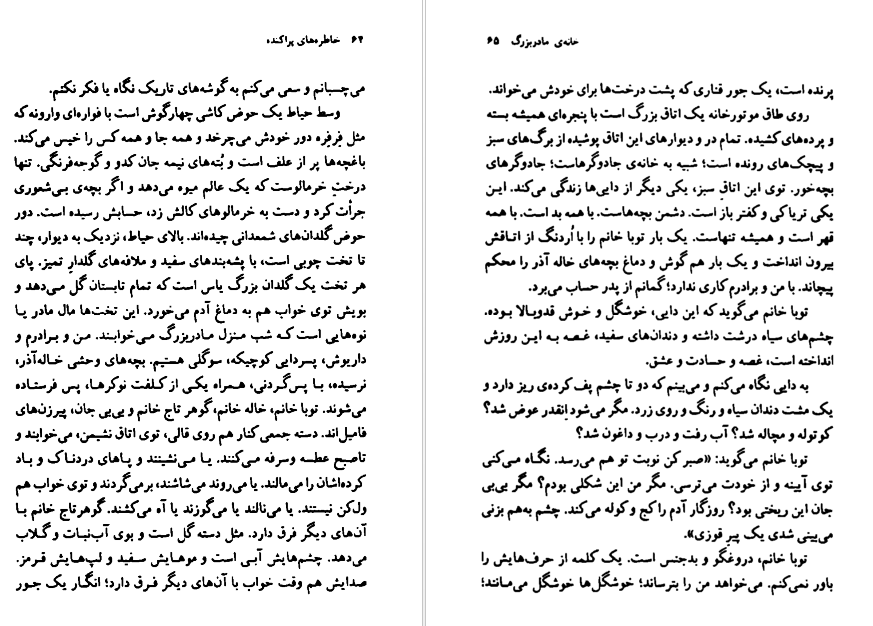 ۶۴ خاطره‌های پراکنده
می‌چسبانم و سعی می‌کنم به گوشه‌های تاریک نگاه یا فکر نکنم.
وسط حیاط یک حوض کاشی چهارگوش است با فواره‌ای وارونه که
مثل فِرفِره دور خودش می‌چرخد و همه جا و همه کس را خیس می‌کند.
باغچه‌ها پر از علف است و بُته‌های نیمه جان کدو و گوجه‌فرنگی. تنها
درختِ خرمالوست که یک عالم میوه می‌دهد و اگر بچه‌ی بی‌شعوری
جرأت کرد و دست به خرمالوهای کالش زد، حسابش رسیده است. دور
حوض گلدان‌های شمعدانی چیده‌اند. بالای حیاط، نزدیک به دیوار، چند
تا تخت چوبی است، با پشه‌بندهای سفید و ملافه‌های گلدارِ تمیز. پای
هر تخت یک گلدان بزرگ یاس است که تمام تابستان گل می‌دهد و
بویش توی خواب هم به دماغ آدم می‌خورد. این تخت‌ها مال مادر یا
نوه‌هایی است که شب منزل مادربزرگ می‌خوابند. من و برادرم و
داریوش، پسردایی کوچیکه، سوگلی هستیم. بچه‌های وحشی خاله‌آذر،
نرسیده، با پس‌گردنی، همراه یکی از کلفت نوکرها، پس فرستاده
می‌شوند. توبا خانم، خاله خانم، گوهر تاج خانم و بی‌بی جان، پیرزن‌های
فامیل‌اند. دسته جمعی کنار هم روی قالی، توی اتاق نشیمن، می‌خوابند و
تاصبح عطسه وسرفه می‌کنند. یا می‌نشینند و پاهای دردناک و باد
کرده‌اشان را می‌مالند. یا می‌روند می‌شاشند، برمی‌گردند و توی خواب هم
ول‌کن نیستند. یا می‌نالند یا می‌گوزند یا آه می‌کشند. گوهرتاج خانم با
آن‌های دیگر فرق دارد. مثل دسته گل است و بوی آب‌نبات و گلاب
می‌دهد. چشم‌هایش آبی است و موهایش سفید و لپ‌هایش قرمز.
صدایش هم وقت خواب با آن‌های دیگر فرق دارد؛ انگار یک جور
خانه‌ی مادربزرگ ۶۵
پرنده است، یک جور قناری که پشت درخت‌ها برای خودش می‌خواند.
روی طاق موتورخانه یک اتاق بزرگ است با پنجره‌ای همیشه بسته
و پرده‌های کشیده. تمام در و دیوارهای این اتاق پوشیده از برگ‌های سبز
و پیچک‌های رونده است؛ شبیه به خانه‌ی جادوگرهاست؛ جادوگرهای
بچه‌خور. توی این اتاقِ سبز، یکی دیگر از دایی‌ها زندگی می‌کند. این
یکی تریاکی و کفتر باز است. دشمن بچه‌هاست. با همه بد است. با همه
قهر است و همیشه تنهاست. یک بار توبا خانم را با اُردنگ از اتاقش
بیرون انداخت و یک بار هم گوش و دماغ بچه‌های خاله آذر را محکم
پیچاند. با من و برادرم کاری ندارد؛ گمانم از پدر حساب می‌برد.
توبا خانم می‌گوید که این دایی، خوشگل و خوش قدوبالا بوده.
چشم‌های سیاه درشت داشته و دندان‌های سفید، غصه به این روزش
انداخته است، غصه و حسادت و عشق.
به دایی نگاه می‌کنم و می‌بینم که دو تا چشم پف کرده‌ی ریز دارد و
یک مشت دندان سیاه و رنگ و روی زرد. مگر می‌شود اِنقدر عوض شد؟
کوتوله و مچاله شد؟ آب رفت و درب و داغون شد؟
توبا خانم می‌گوید: «صبر کن نوبت تو هم می‌رسد. نگاه می‌کنی
توی آیینه و از خودت می‌ترسی. مگر من این شکلی بودم؟ مگر بی‌بی
جان این ریختی بود؟ روزگار آدم را کج و کوله می‌کند. چشم به‌هم بزنی
می‌بینی شدی یک پیرِ قوزی».
توبا خانم، دروغگو و بدجنس است. یک کلمه از حرف‌هایش را
باور نمی‌کنم. می‌خواهد من را بترساند؛ خوشگل‌ها خوشگل می‌مانند؛